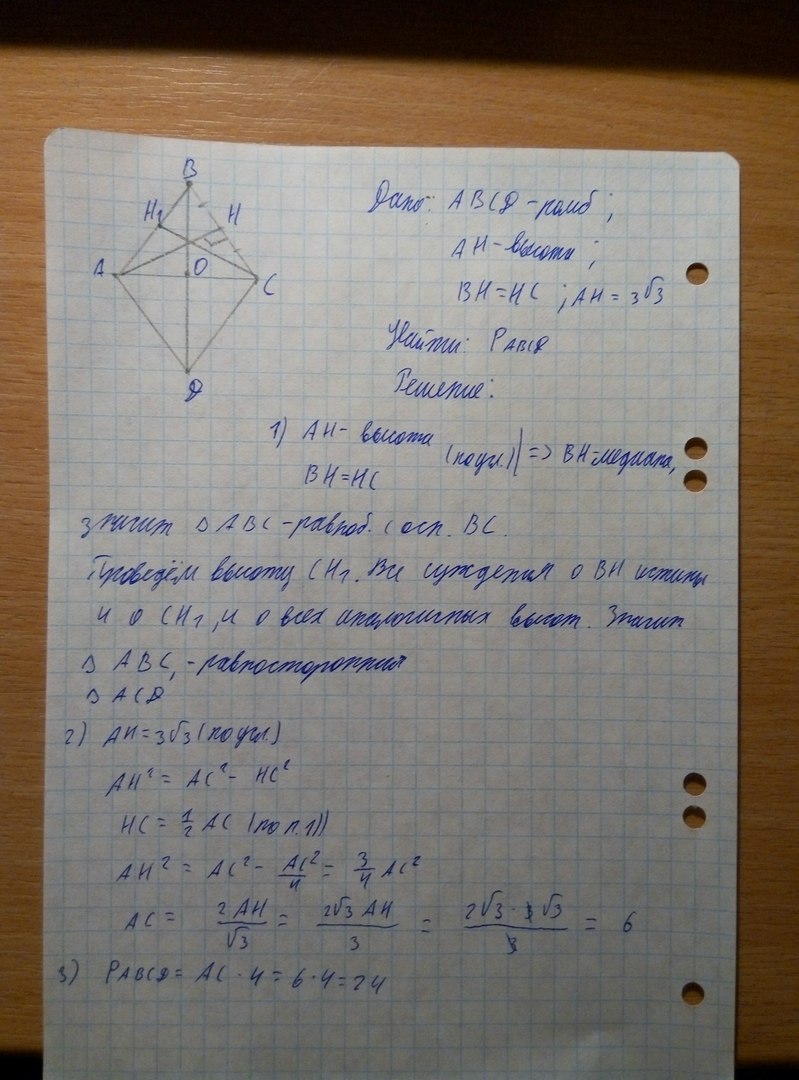 B
H₁ H
A O C
D
Дано: ABCD - ромб;
AH - высота;
BH = HC ; AH = 3√3
Найти: P_ABCD
Решение:
1) AH - высота
BH = HC (по усл.) | => BH - медиана,
значит △ ABC - равноб. с осн. BC.
Проведём высоту CH₁. Все суждения о BH истины
и о CH₁, и о всех аналогичных высот. Значит
△ ABC, - равносторонния
△ ACD
2) AH = 3√3 (по усл.)
AH² = AC² - HC²
HC = 1/2 AC (по п.1))
AH² = AC² - AC²/4 = 3/4 AC²
AC = 2AH/√3 = 2√3 AH/3 = 2√3 · 3√3/3 = 6
3) P_ABCD = AC · 4 = 6 · 4 = 24